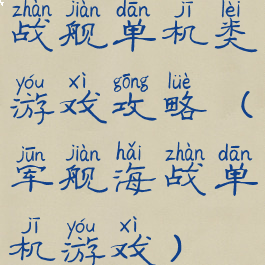 zhàn jiàn dān jī lèi
战舰单机类
yóu xì gōng lüè
游戏攻略（
jūn jiàn hǎi zhàn dān
军舰海战单
jī yóu xì
机游戏）